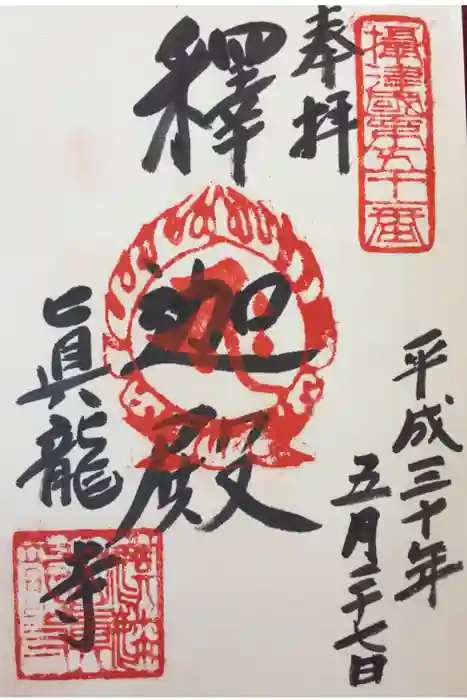 攝津國第六十一番
奉拝
平成三十年
五月二十七日
釋迦殿
眞龍寺